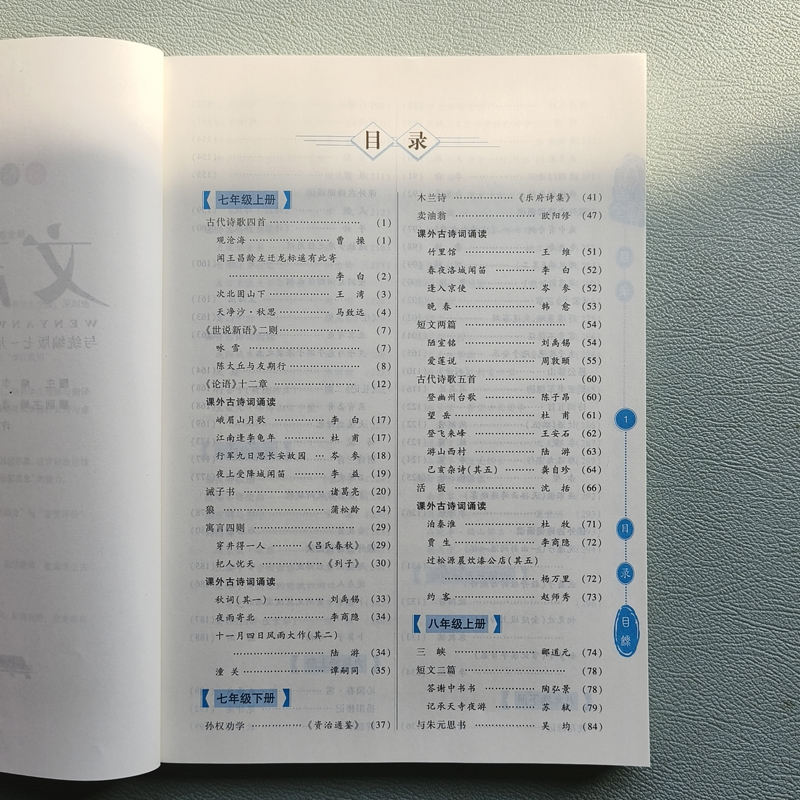 目 录
七年级上册
古代诗歌四首 …………………… (1)
观沧海 ………………… 曹 操 (1)
闻王昌龄左迁龙标遥有此寄
………………… 李 白 (2)
次北固山下 …………… 王 湾 (3)
天净沙·秋思 ………… 马致远 (4)
《世说新语》二则 ………………… (7)
咏 雪 ………………………… (7)
陈太丘与友期行 ……………… (8)
《论语》十二章 ………………… (12)
课外古诗词诵读
峨眉山月歌 …………… 李 白 (17)
江南逢李龟年 ………… 杜 甫 (17)
行军九日思长安故园 … 岑 参 (18)
夜上受降城闻笛 ……… 李 益 (19)
诫子书 ………………… 诸葛亮 (20)
狼 ……………………… 蒲松龄 (24)
寓言四则 ………………………… (29)
穿井得一人 ……… 《吕氏春秋》 (29)
杞人忧天 …………… 《列子》 (30)
课外古诗词诵读
秋词(其一) …………… 刘禹锡 (33)
夜雨寄北 ……………… 李商隐 (34)
十一月四日风雨大作(其二)
………………… 陆 游 (34)
潼 关 ………………… 谭嗣同 (35)
七年级下册
孙权劝学 ………… 《资治通鉴》 (37)
木兰诗 …………… 《乐府诗集》 (41)
卖油翁 ………………… 欧阳修 (47)
课外古诗词诵读
竹里馆 ………………… 王 维 (51)
春夜洛城闻笛 ………… 李 白 (52)
逢入京使 ……………… 岑 参 (52)
晚 春 ………………… 韩 愈 (53)
短文两篇 ………………………… (54)
陋室铭 ………………… 刘禹锡 (54)
爱莲说 ………………… 周敦颐 (55)
古代诗歌五首 …………………… (60)
登幽州台歌 …………… 陈子昂 (60)
望 岳 ………………… 杜 甫 (61)
登飞来峰 ……………… 王安石 (62)
游山西村 ……………… 陆 游 (63)
己亥杂诗(其五) ……… 龚自珍 (64)
活 板 ………………… 沈 括 (66)
课外古诗词诵读
泊秦淮 ………………… 杜 牧 (71)
贾 生 ………………… 李商隐 (72)
过松源晨炊漆公店(其五)
………………… 杨万里 (72)
约 客 ………………… 赵师秀 (73)
八年级上册
三 峡 ………………… 郦道元 (74)
短文二篇 ………………………… (78)
答谢中书书 …………… 陶弘景 (78)
记承天寺夜游 ………… 苏 轼 (79)
与朱元思书 …………… 吴 均 (84)
1
目
录
目录